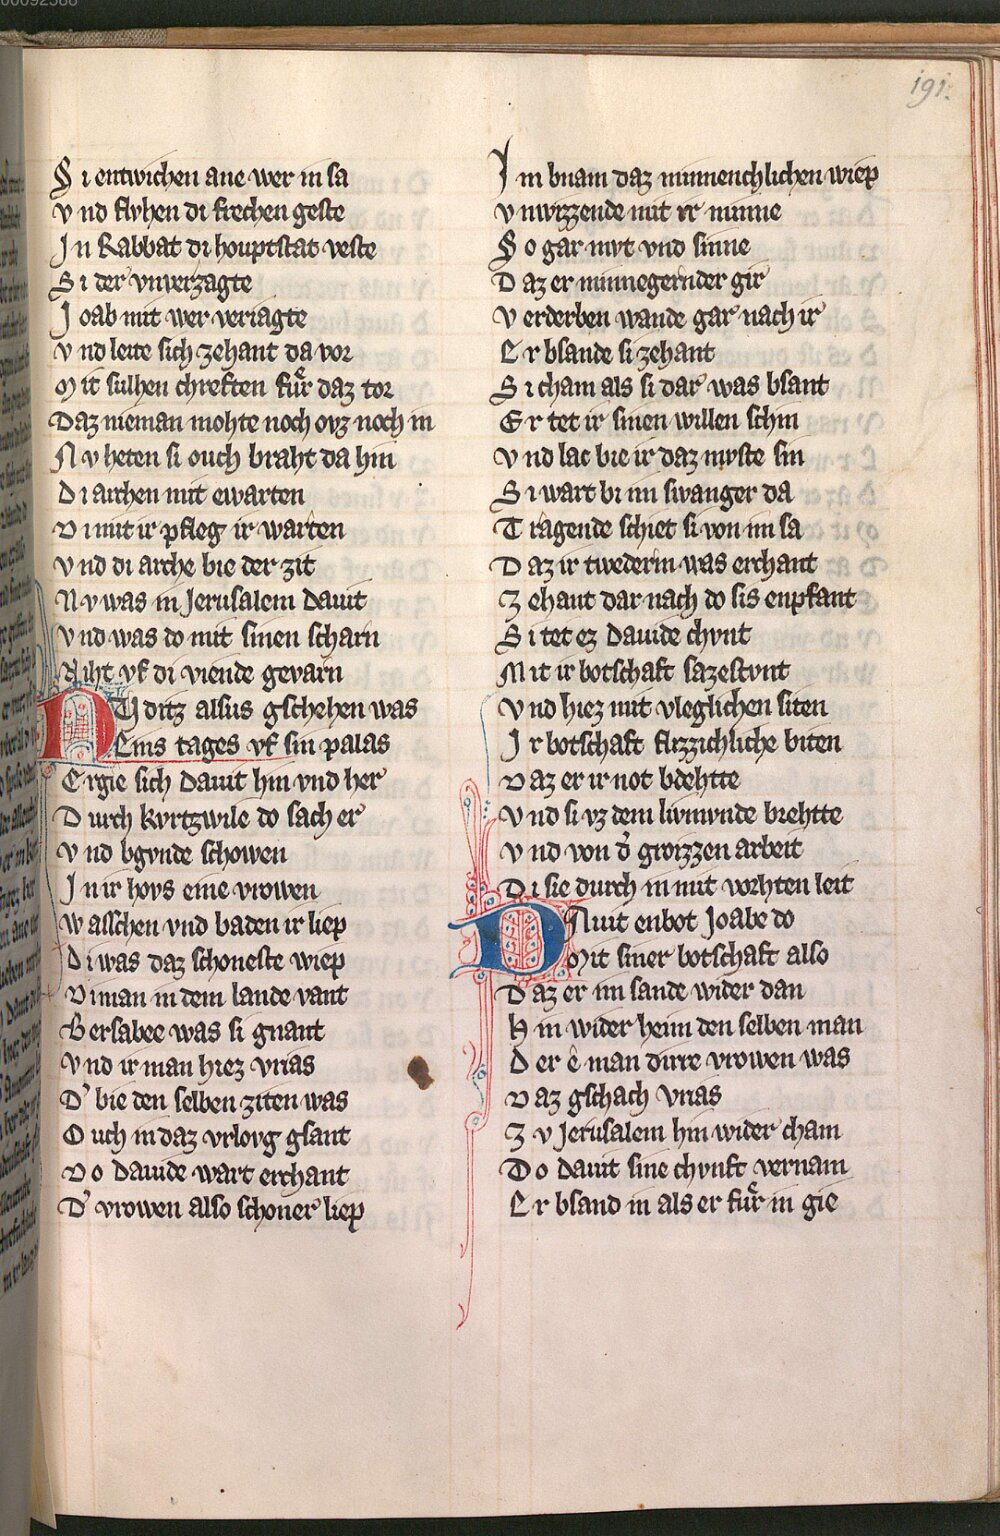 191.
Si entwichen ane wer in sa
vnd flvhen di frechen geste
Jn Rabbat di houptstat veste
Si der vnverzagte
Joab mit wer veriagte
vnd leite sich zehant da vor
Mit sulhen chreften fuͤr daz tor
Daz nieman mohte noch ovz noch in
Nv heten si ouch braht da hin
Di archen mit ewarten
Di mit ir pfleg ir warten
vnd di arche bie der zit
Nv was in Jerusalem Dauit
vnd was do mit sinen scharn
Niht vf di viende gevarn
NV ditz alsus gschehen was
Eins tages vf sin palas
Ergie sich Dauit hin vnd her
Durch kvrtzwile do sach er
vnd bgvnde schowen
Jn ir hovs eine vrowen
Wasschen vnd baden ir liep
Di was daz schoneste wiep
Di man in dem lande vant
Bersabee was si gnant
vnd ir man hiez vrias
D' bie den selben ziten was
Ouch in daz vrlovg gsant
Do Dauide wart erchant
D' vrowen also schoner liep
Jm bnam daz minnenchlichen wiep
vnwizzende mit ir minne
So gar mvt vnd sinne
Daz er minnegernder gir
verderben wande gar nach ir
Er bsande si zehant
Si cham als si dar was bsant
Er tet ir sinen willen schin
vnd lac bie ir daz mvste sin
Si wart bi im swanger da
Tragende schiet si von im sa
Daz ir twederm was erchant
Zehant dar nach do sis enpfant
Si tet ez Dauide chvnt
Mit ir botschaft sazestvnt
vnd hiez mit vleglichen siten
Jr botschaft flizzichliche biten
Daz er ir not bdehtte
vnd si vz dem livmvnde brehtte
vnd von d' groizzen arbeit
Di sie durch in mit vorhten leit
DAuit enbot Joabe do
Mit siner botschaft also
Daz er im sande wider dan
Hin wider heim den selben man
Der ê man dirre vrowen was
Daz gschach vrias
Zv Jerusalem hin wider cham
Do Dauit sine chvnft vernam
Er bsand in als er fuͤr in gie